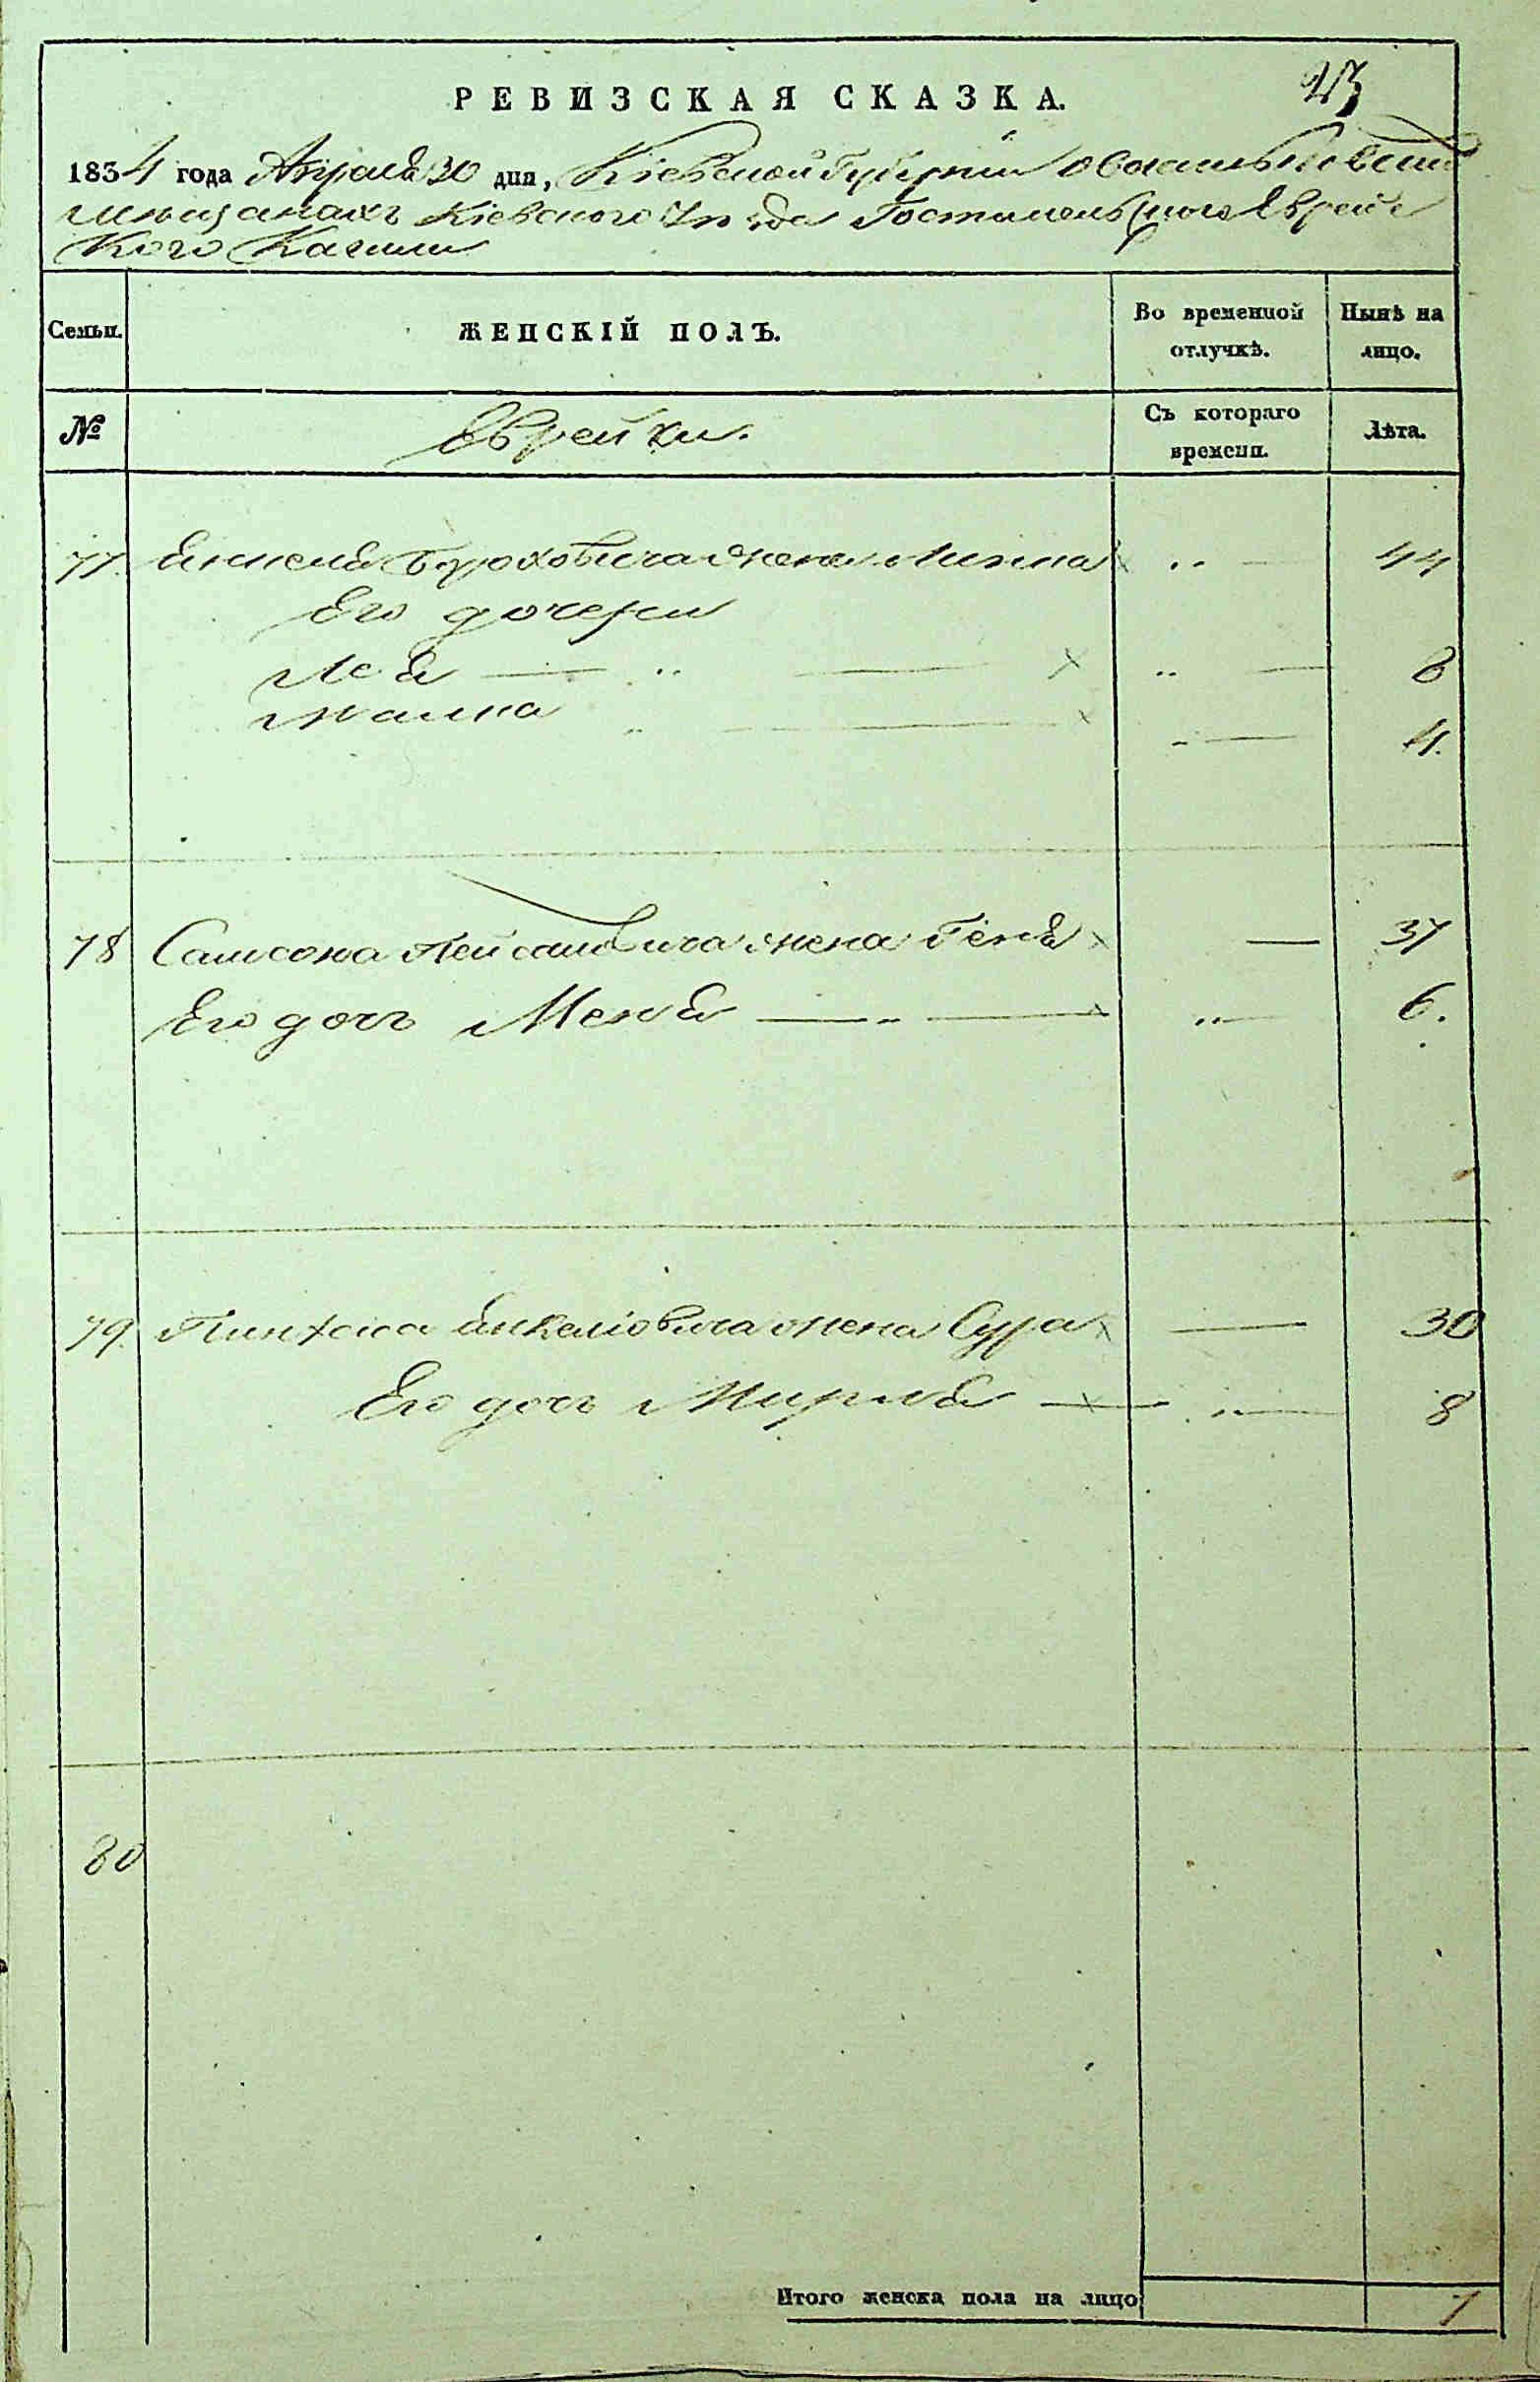 РЕВИЗСКАЯ СКАЗКА.
1834 года Апреля 30 дня, Кіевской Губерніи о Васильковски
мѣщанахъ Кіевского Уѣзда Гостомельского Еврейс
кого Кагала
Семьи. ЖЕНСКІЙ ПОЛЪ. Во временной отлучкѣ. Нынѣ на лицо.
№ Еврейки. Съ котораго времени. Лѣта.
77. Янкеля Бороховича жена 44
Его дочери
Лея — 〃 — × 〃 — 8
Малка 〃 — × 〃 — 4.
78 Самсона Лейбовича жена Геня × — 37
Его дочь Меня — 〃 — × 〃 — 6.
79. Пинхаса Янкелiовича жена Сура × — 30
Его дочь Мирля — × — 〃 — 8
80
Итого женска пола на лицо 7